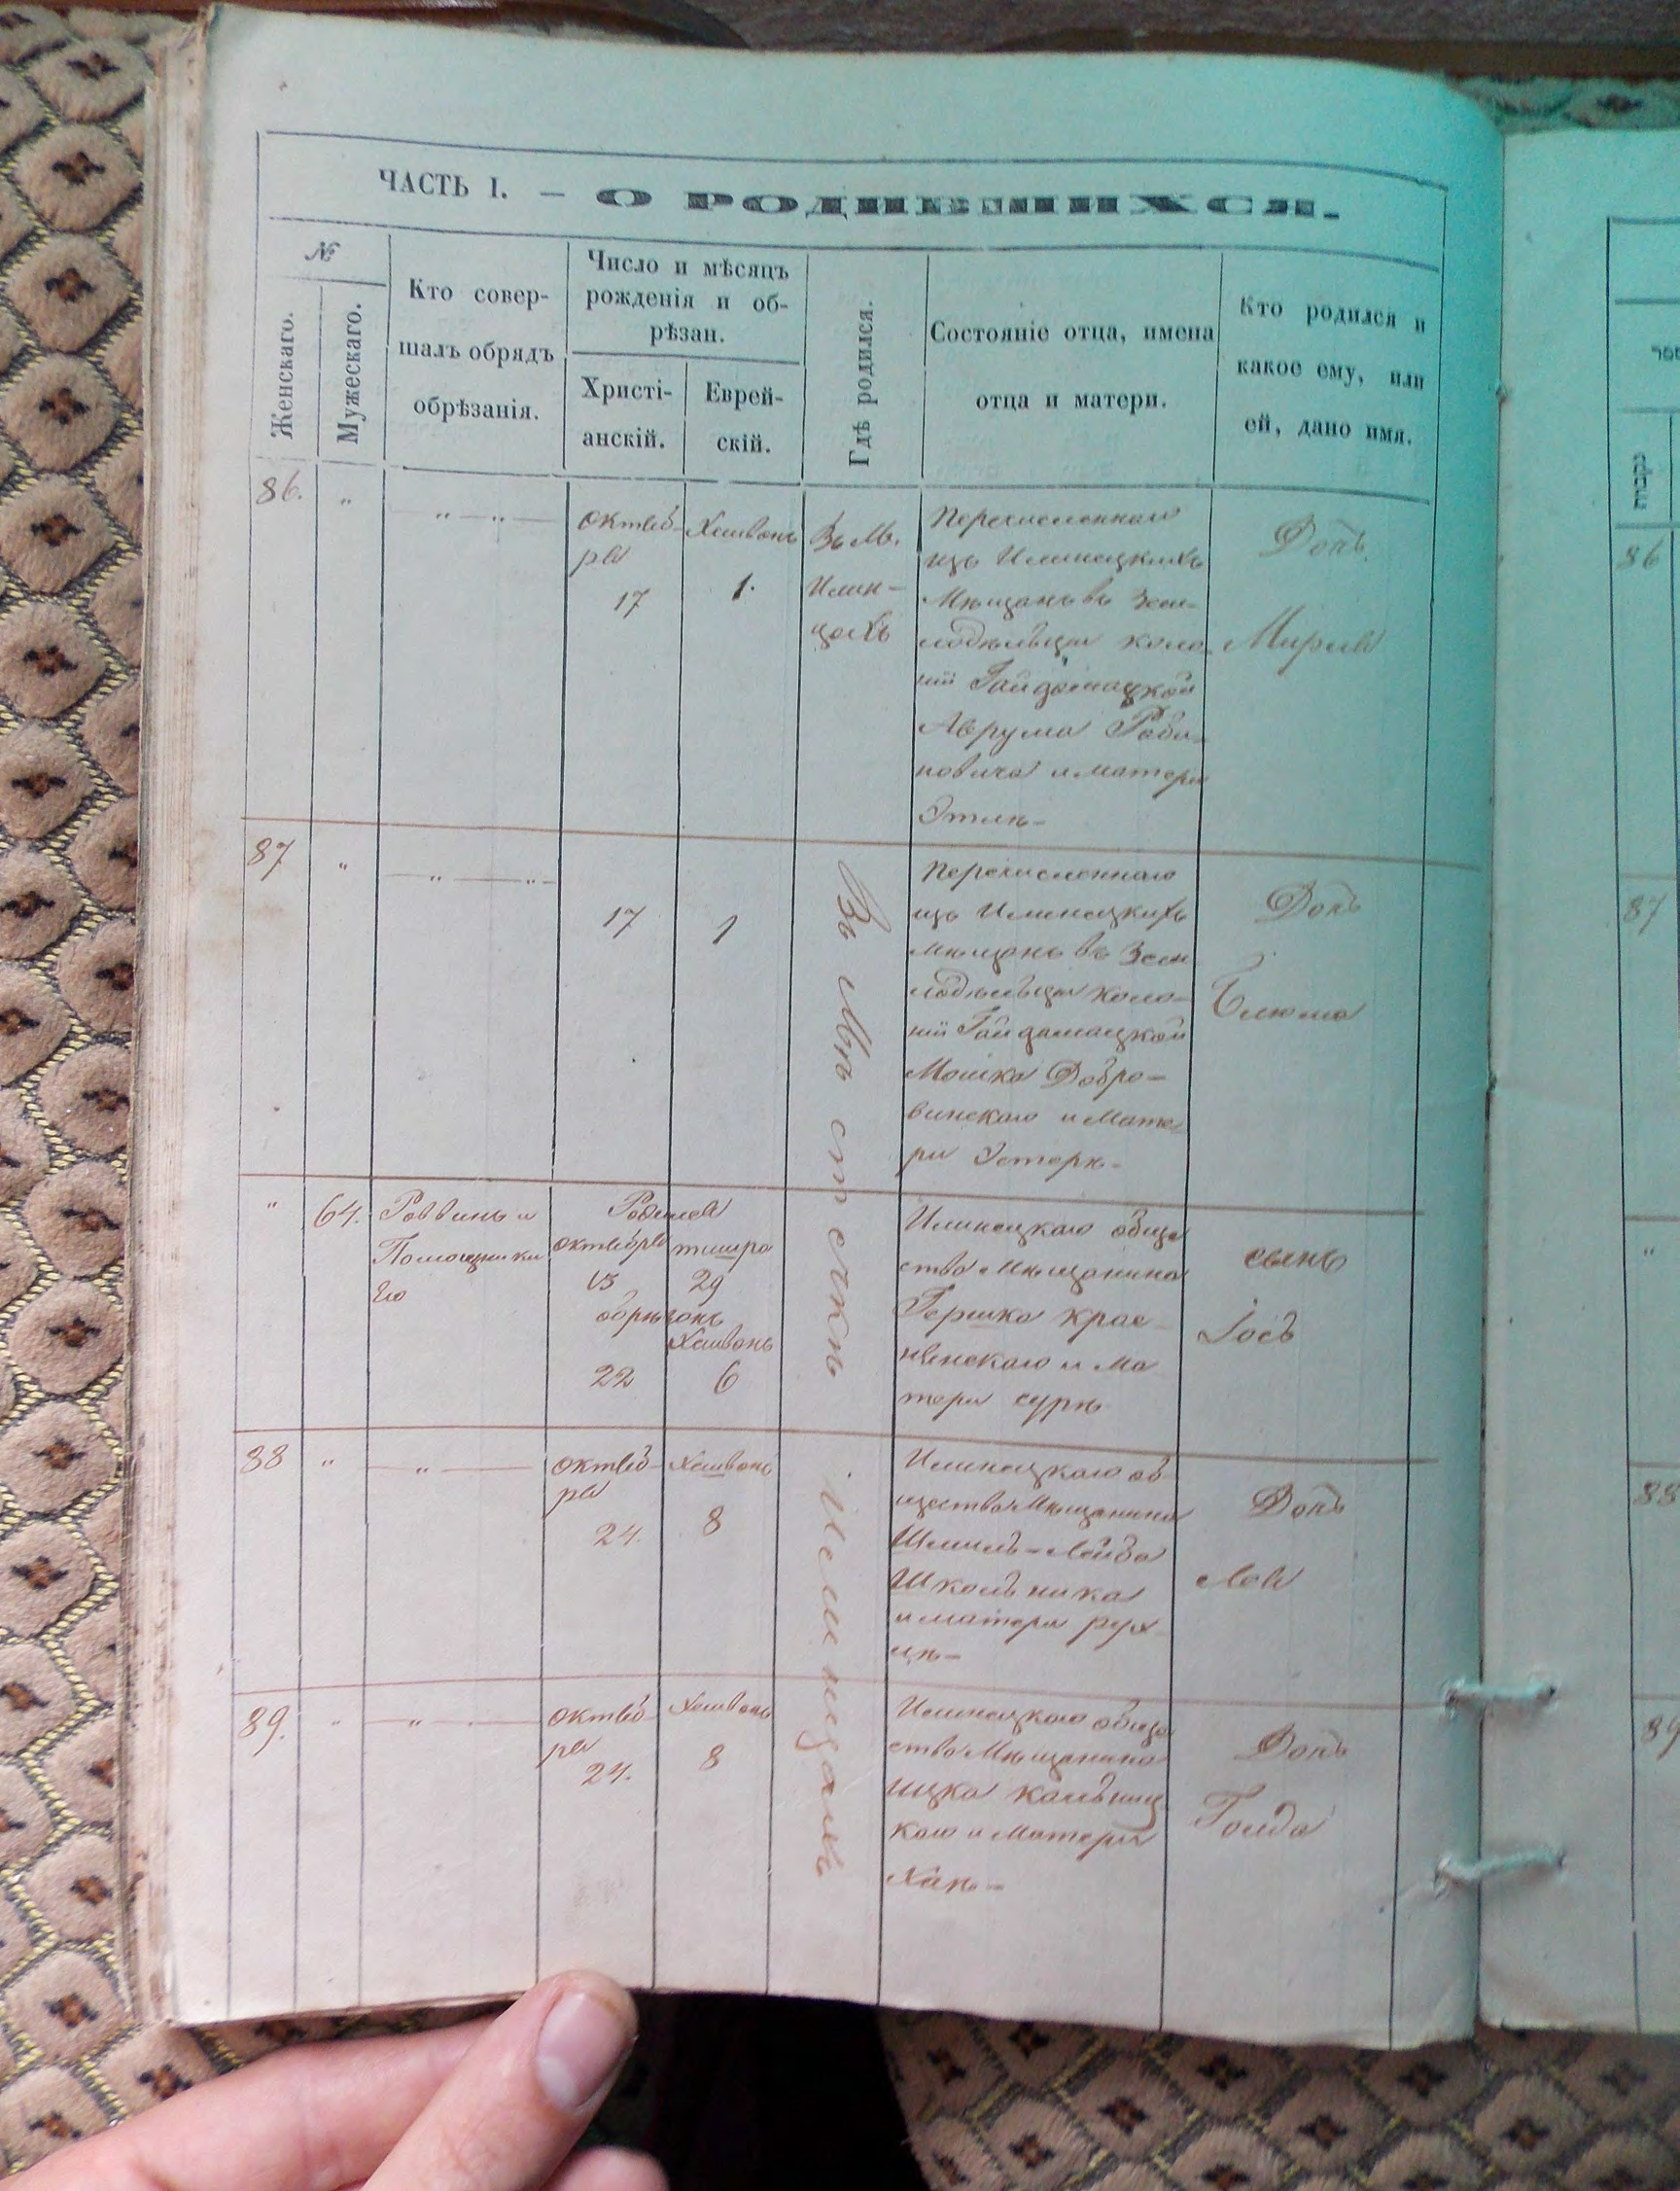 ЧАСТЬ I. — О РОДИВШИХСЯ.
№
Женскаго.
Мужескаго.
Кто совер-
шалъ обрядъ
обрѣзанія.
Число и мѣсяцъ
рожденія и об-
рѣзан.
Христі-
анскій.
Еврей-
скій.
Гдѣ родился.
Состояніе отца, имена
отца и матери.
Кто родился и
какое ему, или
ей, дано имя.
86. „
„ „
октяб-
ря
17
Хешвонъ
1.
Въ М.
Илин-
цахъ
Перечисленнаго
изъ Илинецкихъ
Мѣщанъ въ Зем-
лодѣльцы коло-
ніи Гайдамацкой
Аврума Раби-
новича и матери
Этлѣ
Дочь
Мирия
87 „
„ „
17
1
Въ Мѣстечкѣ Илинцахъ
Перечисленнаго
изъ Илинецкихъ
мѣщанъ въ Зем
лодѣльцы коло-
ніи Гайдамацкой
Мошка Добро-
винскаго и Мате-
ри Эстеръ
Дочь
Блюма
„ 64.
Раввинъ и
Помощники
Его
Родился
октября тишра
15 29
обрѣзанъ
Хешвонъ
22 6
Илинецкаго обще
ства Мѣщанина
Гершка Крас-
нянскаго и Ма
тери Сурѣ
сынъ
Іосъ
88 „
„
октяб-
ря
24.
Хешвонъ
8
Илинецкаго об-
щества Мѣщанина
Шмиль-Лейба
Школьника
и матери Рух
лѣ
Дочь
Лея
89. „
„
октяб-
ря
24.
Хешвонъ
8
Илинецкаго обще
ства Мѣщанина
Ицка Кальниц
каго и Матери
Ханѣ
Дочь
Голда
86
87
„
88
89